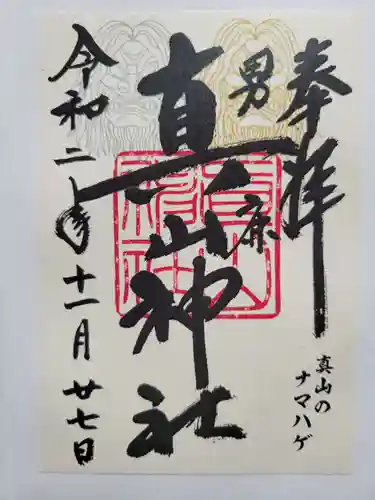 奉拝
男鹿
真山神社
令和二年十一月廿七日
真山の
ナマハゲ